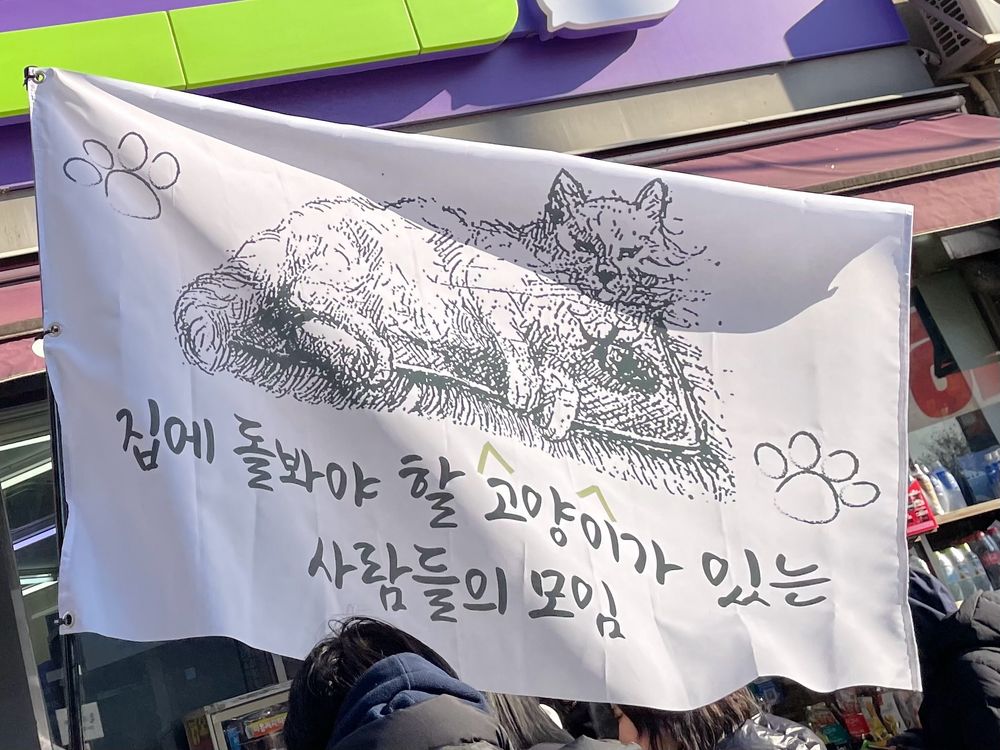 집에 돌봐야 할 고양이가 있는
사람들의 모임